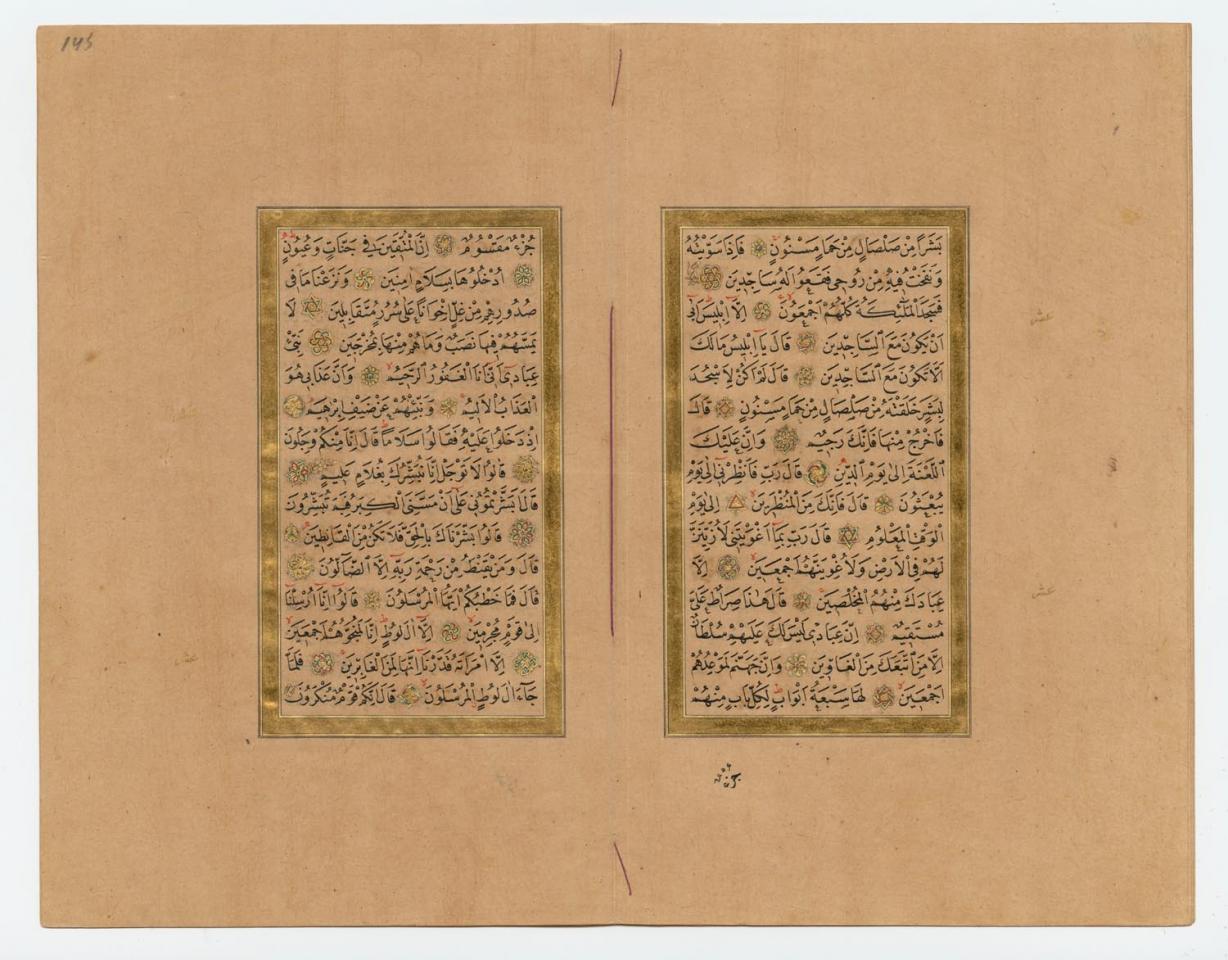 بَشَرًا مِنْ صَلْصَالٍ مِنْ حَمَأٍ مَسْنُونٍ فَإِذَا سَوَّيْتُهُ
وَنَفَخْتُ فِيهِ مِنْ رُوحِى فَقَعُوا لَهُ سَاجِدِينَ
فَسَجَدَ الْمَلٰٓئِكَةُ كُلُّهُمْ اَجْمَعُونَ اِلَّٓا اِبْلِيسَ اَبٰٓى
اَنْ يَكُونَ مَعَ السَّاجِدِينَ قَالَ يَٓا اِبْلِيسُ مَالَكَ
اَلَّا تَكُونَ مَعَ السَّاجِدِينَ قَالَ لَمْ اَكُنْ لِاَسْجُدَ
لِبَشَرٍ خَلَقْتَهُ مِنْ صَلْصَالٍ مِنْ حَمَأٍ مَسْنُونٍ قَالَ
فَاخْرُجْ مِنْهَا فَاِنَّكَ رَجِيمٌ وَاِنَّ عَلَيْكَ
اللَّعْنَةَ اِلٰى يَوْمِ الدِّينِ قَالَ رَبِّ فَاَنْظِرْنِٓى اِلٰى يَوْمِ
يُبْعَثُونَ قَالَ فَاِنَّكَ مِنَ الْمُنْظَرِينَ اِلٰى يَوْمِ
الْوَقْتِ الْمَعْلُومِ قَالَ رَبِّ بِمَٓا اَغْوَيْتَنِى لَاُزَيِّنَنَّ
لَهُمْ فِى الْاَرْضِ وَلَاُغْوِيَنَّهُمْ اَجْمَعِينَ اِلَّا
عِبَادَكَ مِنْهُمُ الْمُخْلَصِينَ قَالَ هٰذَا صِرَاطٌ عَلَىَّ
مُسْتَقِيمٌ اِنَّ عِبَادِى لَيْسَ لَكَ عَلَيْهِمْ سُلْطَانٌ
اِلَّا مَنِ اتَّبَعَكَ مِنَ الْغَاوِينَ وَاِنَّ جَهَنَّمَ لَمَوْعِدُهُمْ
اَجْمَعِينَ لَهَا سَبْعَةُ اَبْوَابٍ لِكُلِّ بَابٍ مِنْهُمْ
جُزْءٌ مَقْسُومٌ اِنَّ الْمُتَّقِينَ فِى جَنَّاتٍ وَعُيُونٍ
اُدْخُلُوهَا بِسَلَامٍ اٰمِنِينَ وَنَزَعْنَا مَا فِى
صُدُورِهِمْ مِنْ غِلٍّ اِخْوَانًا عَلٰى سُرُرٍ مُتَقَابِلِينَ لَا
يَمَسُّهُمْ فِيهَا نَصَبٌ وَمَا هُمْ مِنْهَا بِمُخْرَجِينَ نَبِّئْ
عِبَادِٓى اَنِّٓى اَنَا الْغَفُورُ الرَّحِيمُ وَاَنَّ عَذَابِى هُوَ
الْعَذَابُ الْاَلِيمُ وَنَبِّئْهُمْ عَنْ ضَيْفِ اِبْرٰهِيمَ
اِذْ دَخَلُوا عَلَيْهِ فَقَالُوا سَلَامًا قَالَ اِنَّا مِنْكُمْ وَجِلُونَ
قَالُوا لَا تَوْجَلْ اِنَّا نُبَشِّرُكَ بِغُلَامٍ عَلِيمٍ
قَالَ اَبَشَّرْتُمُونِى عَلٰٓى اَنْ مَسَّنِىَ الْكِبَرُ فَبِمَ تُبَشِّرُونَ
قَالُوا بَشَّرْنَاكَ بِالْحَقِّ فَلَا تَكُنْ مِنَ الْقَانِطِينَ
قَالَ وَمَنْ يَقْنَطُ مِنْ رَحْمَةِ رَبِّهِٓ اِلَّا الضَّٓالُّونَ
قَالَ فَمَا خَطْبُكُمْ اَيُّهَا الْمُرْسَلُونَ قَالُٓوا اِنَّٓا اُرْسِلْنَٓا
اِلٰى قَوْمٍ مُجْرِمِينَ اِلَّٓا اٰلَ لُوطٍ اِنَّا لَمُنَجُّوهُمْ اَجْمَعِينَ
اِلَّا امْرَاَتَهُ قَدَّرْنَٓا اِنَّهَا لَمِنَ الْغَابِرِينَ فَلَمَّا
جَٓاءَ اٰلَ لُوطٍ الْمُرْسَلُونَ قَالَ اِنَّكُمْ قَوْمٌ مُنْكَرُونَ
جزء
145